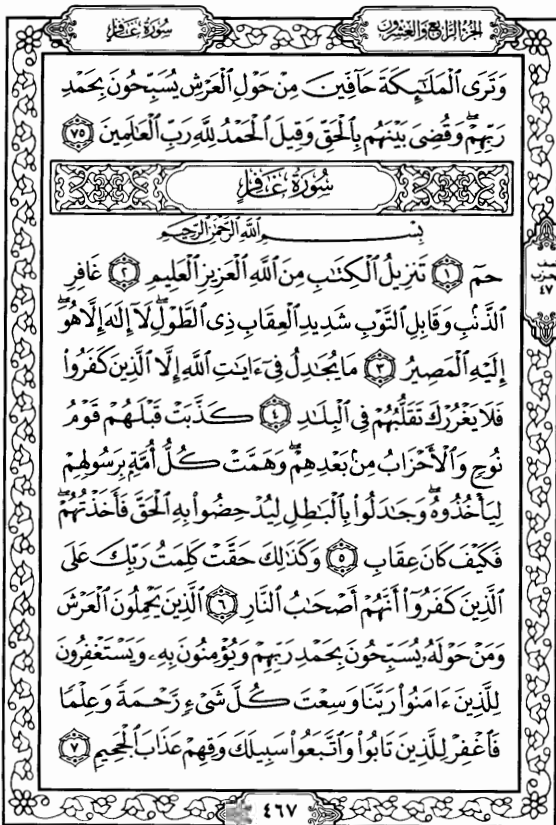 الجزء الرابع والعشرون
سورة غافر
وَتَرَى ٱلْمَلَٰٓئِكَةَ حَآفِّينَ مِنْ حَوْلِ ٱلْعَرْشِ يُسَبِّحُونَ بِحَمْدِ
رَبِّهِمْ ۖ وَقُضِىَ بَيْنَهُم بِٱلْحَقِّ وَقِيلَ ٱلْحَمْدُ لِلَّهِ رَبِّ ٱلْعَٰلَمِينَ ٧٥
سُورَةُ غَافِرٍ
بِسْمِ ٱللَّهِ ٱلرَّحْمَٰنِ ٱلرَّحِيمِ
حمٓ ١ تَنزِيلُ ٱلْكِتَٰبِ مِنَ ٱللَّهِ ٱلْعَزِيزِ ٱلْعَلِيمِ ٢ غَافِرِ
ٱلذَّنۢبِ وَقَابِلِ ٱلتَّوْبِ شَدِيدِ ٱلْعِقَابِ ذِى ٱلطَّوْلِ ۖ لَآ إِلَٰهَ إِلَّا هُوَ ۖ
إِلَيْهِ ٱلْمَصِيرُ ٣ مَا يُجَٰدِلُ فِىٓ ءَايَٰتِ ٱللَّهِ إِلَّا ٱلَّذِينَ كَفَرُوا۟
فَلَا يَغْرُرْكَ تَقَلُّبُهُمْ فِى ٱلْبِلَٰدِ ٤ كَذَّبَتْ قَبْلَهُمْ قَوْمُ
نُوحٍ وَٱلْأَحْزَابُ مِنۢ بَعْدِهِمْ ۖ وَهَمَّتْ كُلُّ أُمَّةٍۭ بِرَسُولِهِمْ
لِيَأْخُذُوهُ ۖ وَجَٰدَلُوا۟ بِٱلْبَٰطِلِ لِيُدْحِضُوا۟ بِهِ ٱلْحَقَّ فَأَخَذْتُهُمْ ۖ
فَكَيْفَ كَانَ عِقَابِ ٥ وَكَذَٰلِكَ حَقَّتْ كَلِمَتُ رَبِّكَ عَلَى
ٱلَّذِينَ كَفَرُوٓا۟ أَنَّهُمْ أَصْحَٰبُ ٱلنَّارِ ٦ ٱلَّذِينَ يَحْمِلُونَ ٱلْعَرْشَ
وَمَنْ حَوْلَهُۥ يُسَبِّحُونَ بِحَمْدِ رَبِّهِمْ وَيُؤْمِنُونَ بِهِۦ وَيَسْتَغْفِرُونَ
لِلَّذِينَ ءَامَنُوا۟ رَبَّنَا وَسِعْتَ كُلَّ شَىْءٍ رَّحْمَةً وَعِلْمًا
فَٱغْفِرْ لِلَّذِينَ تَابُوا۟ وَٱتَّبَعُوا۟ سَبِيلَكَ وَقِهِمْ عَذَابَ ٱلْجَحِيمِ ٧
الحزب
٤٧
٤٦٧